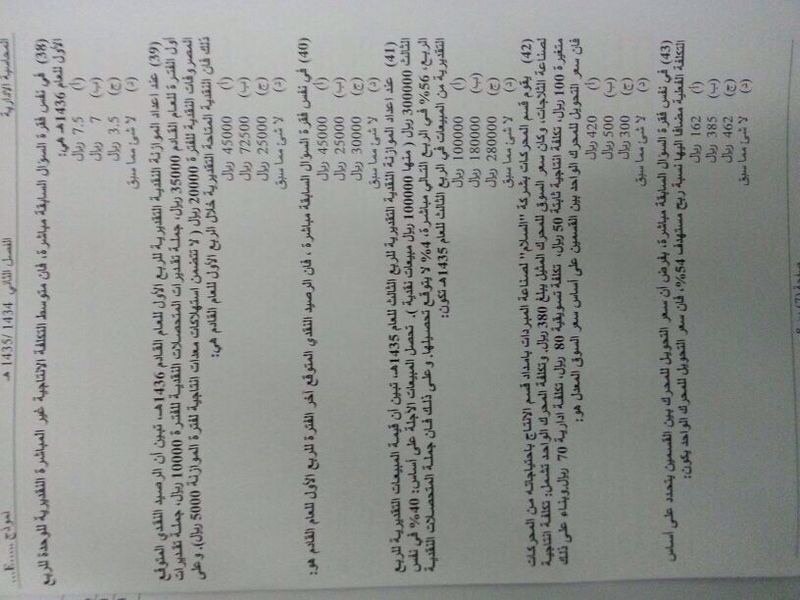 المحاسبة الادارية الفصل الثاني 1434 /1435 هـ نموذج ....E
(38) في نفس فقرة السؤال السابقة مباشرة، فان متوسط التكلفة الانتاجية غير المباشرة التقديرية للوحدة للربع
الأول للعام 1436 هـ هي:
(أ) 7.5 ريال
(ب) 7 ريال
(ج) 3.5 ريال
(د) لا شئ مما سبق
(39) عند اعداد الموازنة النقدية التقديرية للربع الأول للعام القادم 1436هـ، تبين أن الرصيد النقدي المتوقع
أول الفترة للعام القادم 35000 ريال، جملة تقديرات المتحصلات النقدية للفترة 10000 ريال، جملة تقديرات
المصروفات النقدية للفترة 20000 ريال ( لا تتضمن استهلاكات معدات انتاجية لفترة الموازنة 5000 ريال). وعلى
ذلك فان النقدية المتاحة التقديرية خلال الربع الأول للعام القادم هي:
(أ) 45000 ريال
(ب) 72500 ريال
(ج) 25000 ريال
(د) لا شئ مما سبق
(40) في نفس فقرة السؤال السابقة مباشرة ، فان الرصيد النقدي المتوقع آخر الفترة للربع الأول للعام القادم هو:
(أ) 45000 ريال
(ب) 25000 ريال
(ج) 30000 ريال
(د) لا شئ مما سبق
(41) عند اعداد الموازنة النقدية التقديرية للربع الثالث للعام 1435هـ، تبين أن قيمة المبيعات التقديرية للربع
الثالث 300000 ريال ( منها 100000 ريال مبيعات نقدية ). تحصل المبيعات الآجلة على أساس: 40% في نفس
الربع، 56% في الربع التالي مباشرة، 4% لا يتوقع تحصيلها. وعلى ذلك فان جملة المتحصلات النقدية
التقديرية من المبيعات في الربع الثالث للعام 1435هـ تكون:
(أ) 100000 ريال
(ب) 180000 ريال
(ج) 280000 ريال
(د) لا شئ مما سبق
(42) يقوم قسم المحركات بشركة "السلام" لصناعة المبردات بامداد قسم الانتاج باحتياجاته من المحركات
لصناعة الثلاجات، وكان سعر السوق للمحرك المثيل يبلغ 380 ريال. وتكلفة المحرك الواحد تشمل: تكلفة انتاجية
متغيرة 100 ريال، تكلفة انتاجية ثابتة 50 ريال، تكلفة تسويقية 80 ريال، تكلفة ادارية 70 ريال.وبناء على ذلك
فان سعر التحويل للمحرك الواحد بين القسمين على أساس سعر السوق المعدل هو:
(أ) 420 ريال
(ب) 500 ريال
(ج) 300 ريال
(د) لا شئ مما سبق
(43) في نفس فقرة السؤال السابقة مباشرة، بفرض أن سعر التحويل للمحرك بين القسمين يتحدد على أساس
التكلفة الفعلية مضافا اليها نسبة ربح مستهدف 54%، فان سعر التحويل للمحرك الواحد يكون:
(أ) 162 ريال
(ب) 385 ريال
(ج) 462 ريال
(د) لا شئ مما سبق